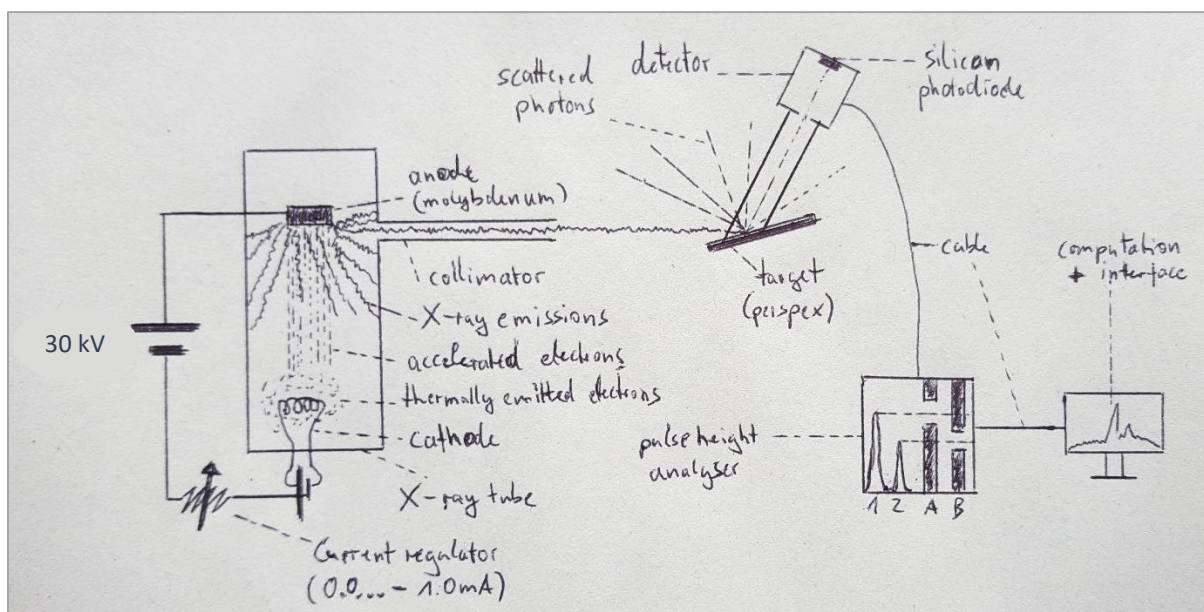 scattered
photons
detector
silicon
photodiode
anode
(molybdenum)
collimator
X-ray emissions
accelerated electrons
thermally emitted electrons
cathode
X-ray tube
30 kV
Current regulator
(0.0... - 1.0mA)
target
(perspex)
cable
computation
+ interface
pulse height
analyser
1 2 A B